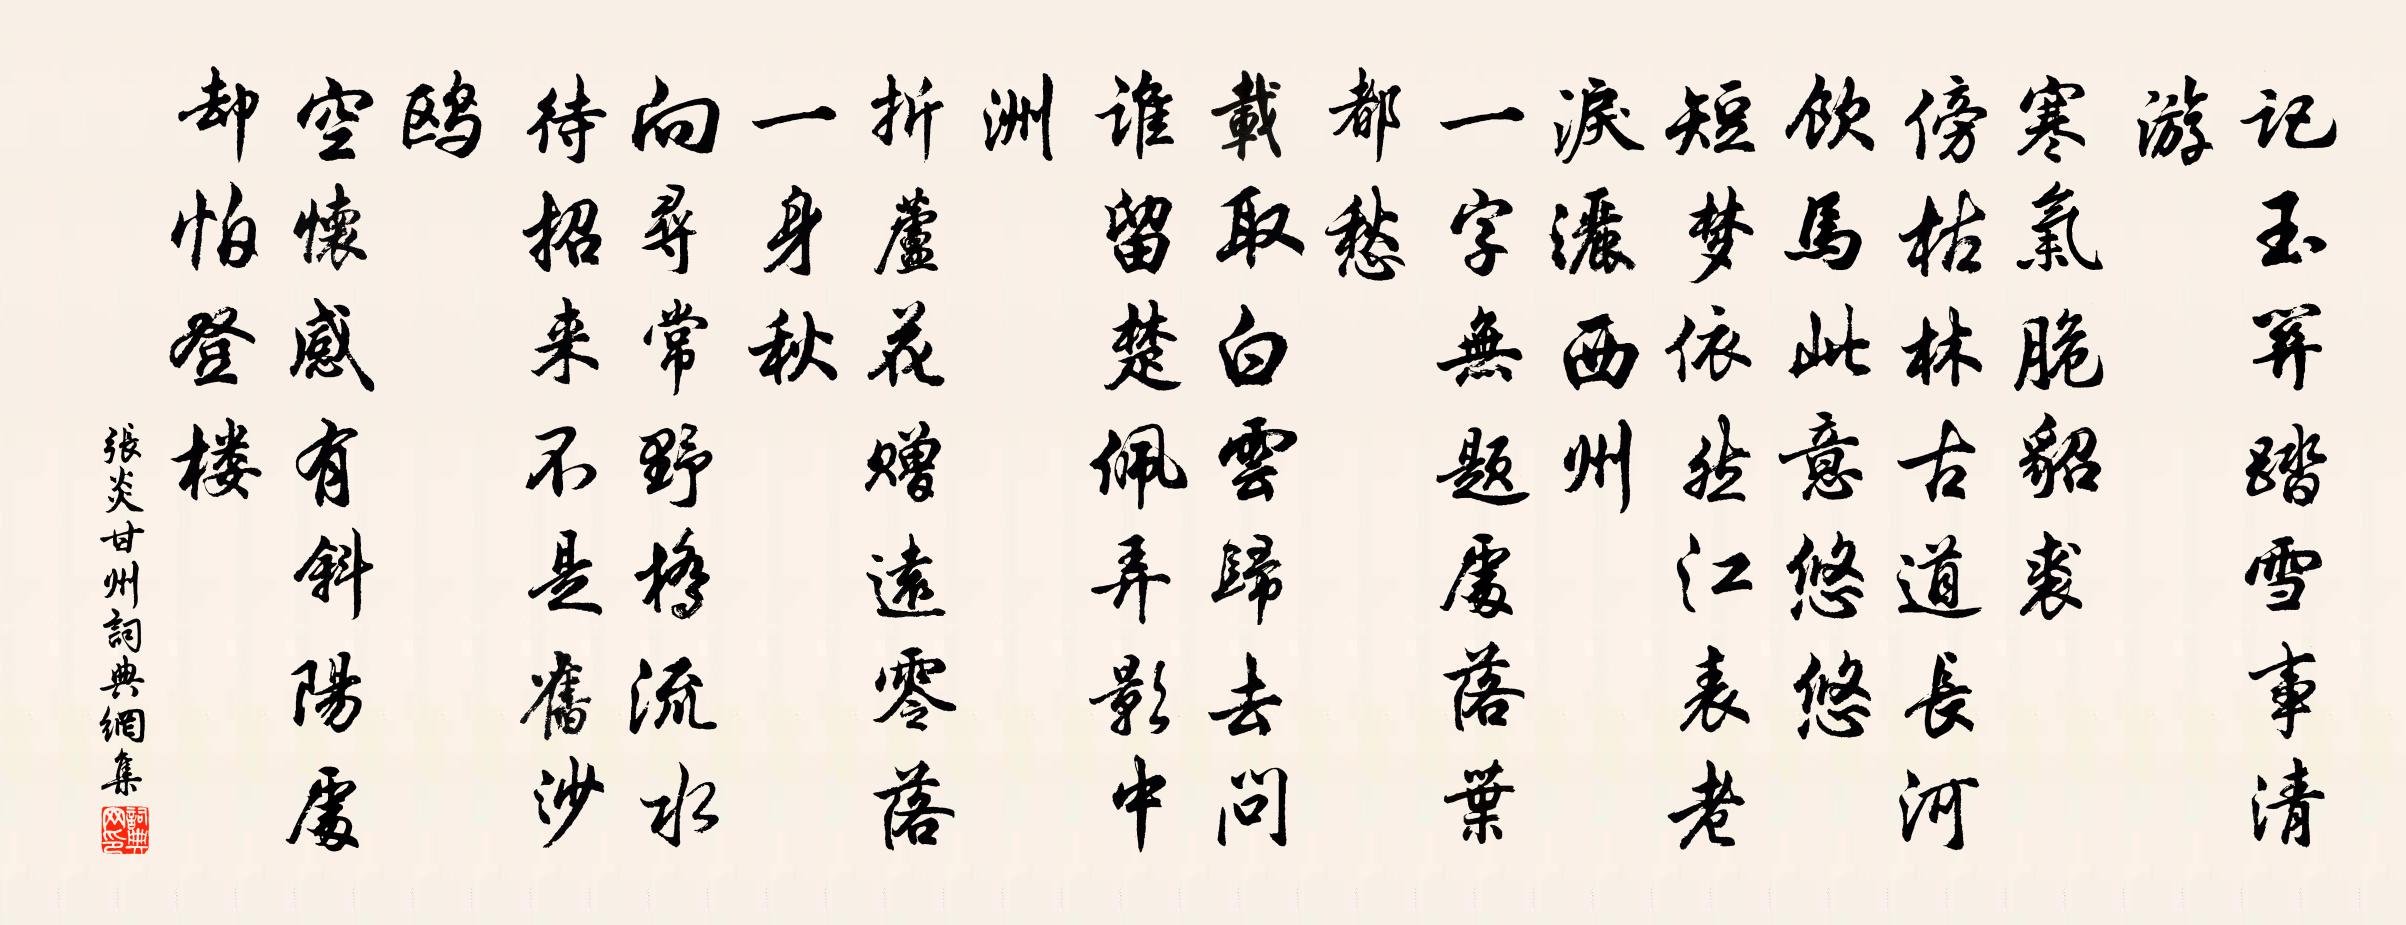 记玉關踏雪事清
游
寒氣脆貂裘
傍枯林古道長河
飲馬此意悠悠
短梦依然江表老
淚灑西州
一字無題處落葉
都愁
載取白雲歸去問
誰留楚佩弄影中
洲
折蘆花赠遠零落
一身秋
向尋常野橋流水
待招来不是舊沙
鸥
空懷感有斜陽處
却怕登楼
張炎甘州詞典網集
詞典網印